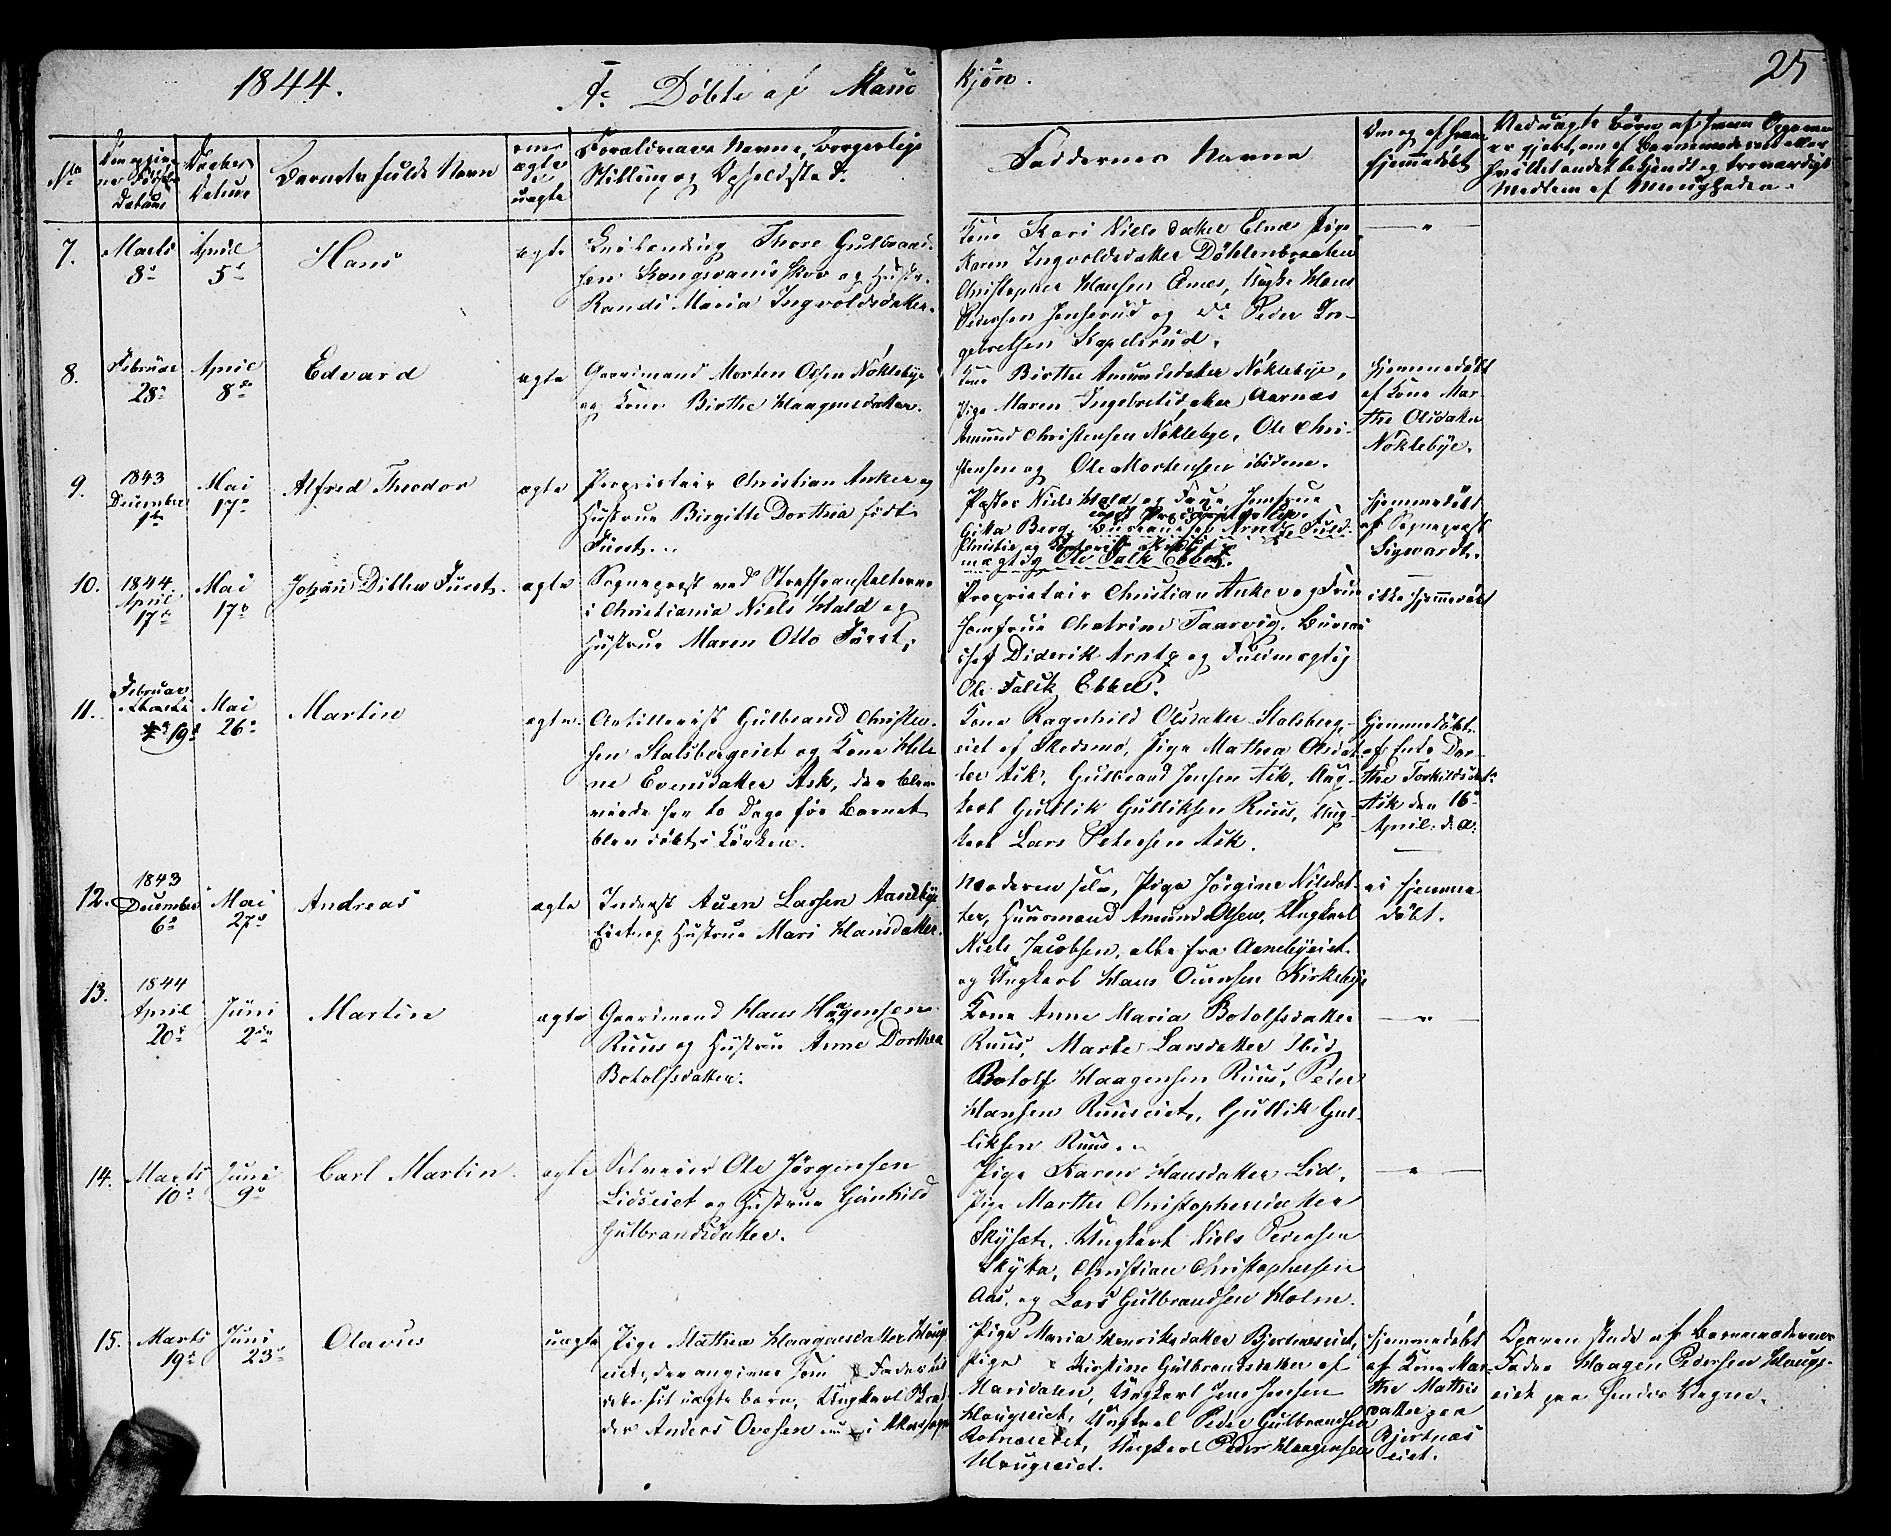 1844.
A. Döbte af Mand
Kjön.
25
No
Datum
Døbes
Datum
Barnets fulde Navn
om
ægte
el.
uægte
Forældrenes Navne, borgerlige
Stilling og Opholdsted.
Faddernes Navne
Om og af hvem
hjemmedøbt
Ved uægte Børn af hvem Opgaven
er gjort, om af Barnemoderen eller
hvilket andet bekjendt og troværdigt
Medlem af Menigheden.
7.
Marts
8de
April
5te
Hans
ægte
Thore Gulbrand-
sen Kongsvangsskov og Hustr.
Randi Maria Ingvoldsdatter.
Kone Kari Nielsdatter Elnæs Pige
Karen Ingvoldsdatter Döhlenbraaten
Christopher Hansen Elnes, Ungk. Hans
Pedersen Jenserud og do Peder In-
gebretsen Kopelsrud.
8.
Februar
28de
April
8de
Edvard
ægte
Gaardmand Morten Olsen Nöklebye
og Kone Birthe Haagensdatter.
Kone Birthe Amundsdatter Nöklebye,
Pige Maren Ingebretsdatter Aarnæs
Amund Christensen Nöklebye, Ole Chri-
stensen og Ole Mortensen ibidem.
Hjemmedøbt
af Kone Mar-
the Olsdatter
Nöklebye.
9.
1843
December
1te
Mai
17de
Alfred Theodor
ægte
Proprietair Christian Anker og
Hustrue Birgitte Dorthea födt
Fürst.
Pastor Niels Hald og Frue, Jomfrue
Gitta Berg,
mægtig Ole Falk Ebbel.
Hjemmedøbt
af Sogneprest
Sigwardt.
10.
1844
April
17de
Mai
17de
Johan Ditlew Fürst.
ægte
Sogneprest ved Straffeanstalterne
i Christiania Niels Hald og
Hustrue Maren Otto Fürst.
Proprietair Christian Anker og Frue
Jomfrue Chatrine Taarvig, Bureau
chef Diderik Arntz og Fuldmægtig
Ole Falck Ebbel.
ikke hjemmedøbt
11.
Februar
19de
Mai
26de
Martin
ægte.
Artillerist Gulbrand Christen-
sen Stalsbergeiet og Kone Hele-
ne Evensdatter Ask, der blev
viede her to Dage før Barnet
blev døbt i Kirken.
Kone Ragnhild Olsdatter Stalsberg-
eiet af Skedsmo, Pige Mathea Olsdat-
ter Ask, Gulbrand Jensen Ask, Ung-
karl Gullik Gulliksen Ruus, Ung-
karl Lars Petersen Ask.
Hjemmedøbt
af Enke Dor-
the Torkildsdatr
Ask den 16de
April d. A.
12.
1843
December
6te
Mai
27de
Andreas
ægte
Inderst Auen Larsen Aamebye
Eiet og Hustrue Mari Hansdatter.
Moderen selv, Pige Jörgine Nilsdat-
ter, Huusmand Amund Olsen, Ungkarl
Niels Jacobsen, alle fra Aanebyeiet
og Ungkarl Hans Ounsen Kirkebye
ei hjemme
döbt.
13.
1844
April
20de
Juni
2den
Martin
ægte
Gaardmand Hans Haagensen
Ruus og Hustrue Anne Dorthea
Botolfsdatter.
Kone Anne Maria Botolfsdatter
Ruus, Marte Larsdatter ibid,
Botolf Haagensen Ruus, Peder
Hansen Ruuseiet, Gullik Gul-
liksen Ruus.
14.
Marts
10de
Juni
9de
Carl Martin.
ægte
Selveier Ole Jörgensen
Lidseiet og Hustrue Gunhild
Gulbrandsdatter.
Pige Karen Hansdatter Lid,
Pige Marthe Christophersdatter
Skyset, Ungkarl Niels Pedersen
Skytta, Christian Christophersen
Aas, og Lars Gulbrandsen Holm.
15.
Marts
19de
Juni
23de
Olavus
uægte
Pige Mathea Haagensdatter Haug-
eiet, der angiver som Fader til
dette sit uægte barn, Ungkarl
Anders Ovesen
Pige Maria Henriksdatter Bjertnæseiet,
Pige Kirstine Gulbrandsdatter af
Maridalen, Ungkarl Jens Jensen
Haugeeiet, Ungkarl Peder Gulbrandsen
Rotnæseiet, Ungkarl Peder Haagensen
Haugeeiet.
Hjemmedøbt
af Kone Mar-
the Mathis
datter paa
Bjertnæs
eiet.
Opgaven skede af Barnemoderens
Fader Haagen Pedersen Haugs-
eiet paa hendes Vegne.